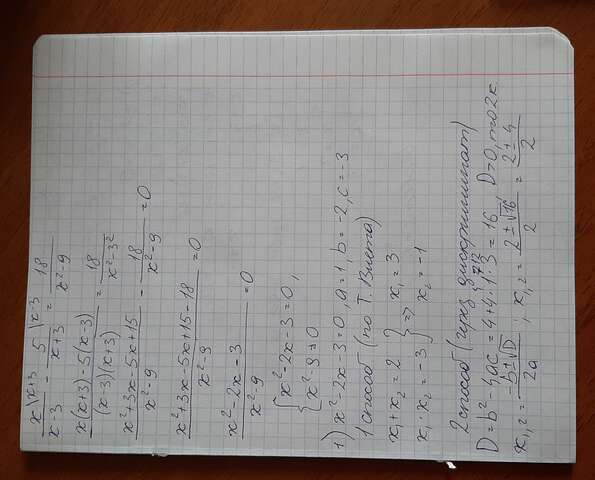 x\x+3/x-3 - 5\x-3/x+3 = 18/x²-9
x(x+3)-5(x-3)/(x-3)(x+3) = 18/x²-3²
x²+3x-5x+15/x²-9 - 18/x²-9 = 0
x²+3x-5x+15-18/x²-9 = 0
x²-2x-3/x²-9 = 0
{x²-2x-3=0,
{x²-9≠0
1) x²-2x-3=0, a=1, b=-2, c=-3
1 способ (по т. Виета)
x₁+x₂=2 } => x₁=3
x₁·x₂=-3 } x₂=-1
2 способ (через дискриминант)
D=b²-4ac=4+4·1·3=16 D>0, то 2к.
x₁,₂ = -b±√D/2a ; x₁,₂ = 2±√16/2 = 2±4/2